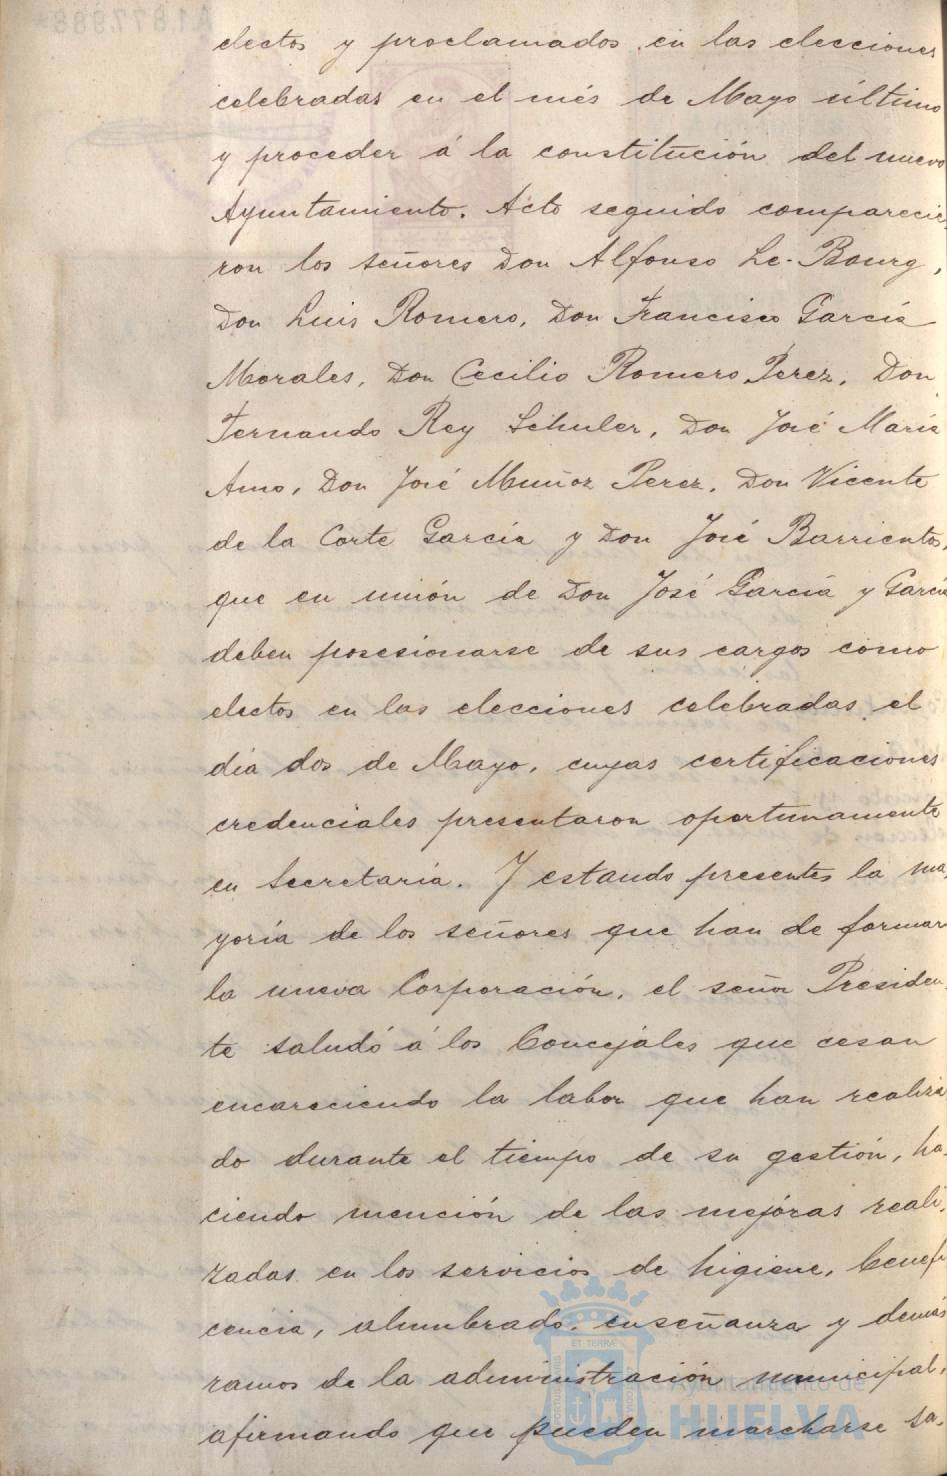 electos y proclamados en las elecciones
celebradas en el més de Mayo último
y proceder á la constitución del nuevo
Ayuntamiento. Acto seguido comparecie-
ron los señores Don Alfonso Le-Bourg,
Don Luis Romero, Don Francisco García
Morales, Don Cecilio Romero Perez, Don
Fernando Rey Schuler, Don José María
Amo, Don José Muñoz Perez, Don Vicente
de la Corte García y Don José Barrientos,
que en unión de Don José García y García
deben posesionarse de sus cargos como
electos en las elecciones celebradas el
día dos de Mayo, cuyas certificaciones
credenciales presentaron oportunamente
en Secretaría. Y estando presentes la ma-
yoría de los señores que han de formar
la nueva Corporación, el señor Presiden-
te saludó á los Concejales que cesan
encareciendo la labor que han realiza
do durante el tiempo de su gestión, ha-
ciendo mención de las mejóras reali-
zadas en los servicios de higiene, benefi
cencia, alumbrado, enseñanza y demás
ramos de la administración municipal,
afirmando que pueden marcharse sa-
Ayuntamiento de
HUELVA
A1.877.988